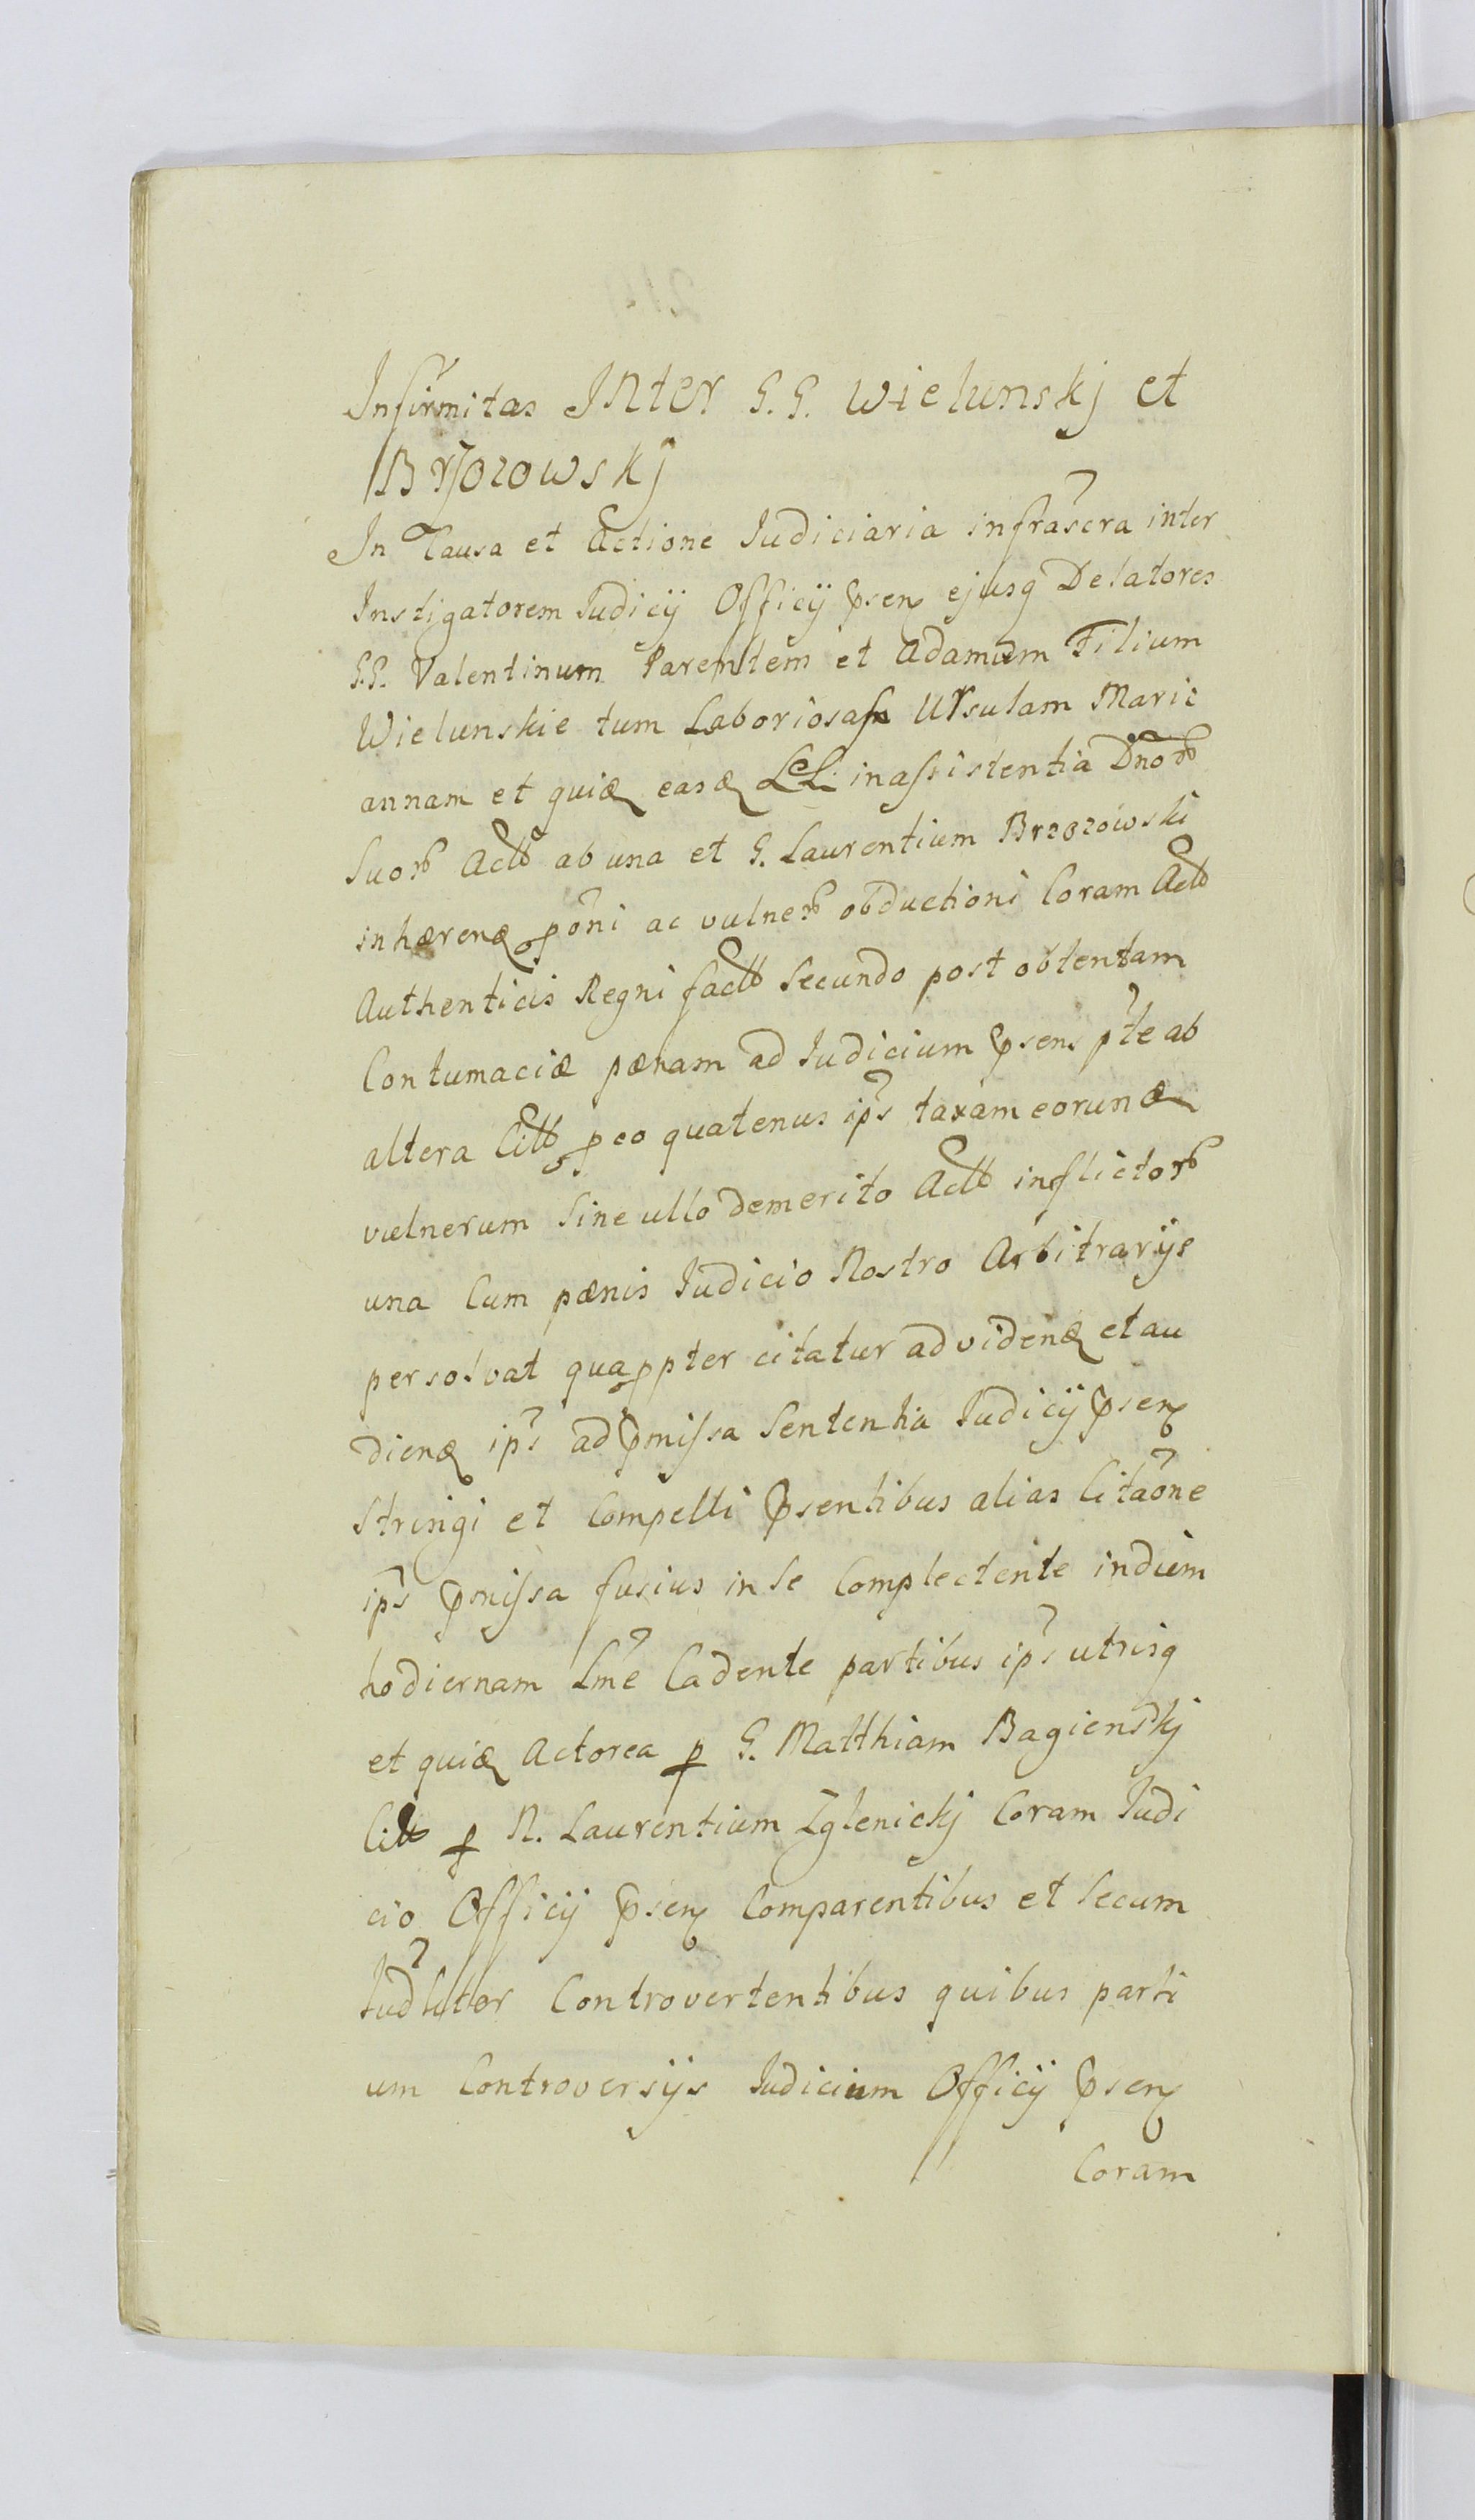 Infirmitas Inter G. G. Wielunskj et
Brzozowskj
In Causa et Actione Judiciaria infrascra inter
Instigatorem Judicij Officij psen ejusq Delatores
G.G. Valentinum Parentem et Adamum Filium
Wielunskie tum Laboriosam Ursulam Mari
annam et quid easd LL. in assistentia Dnor
Suor Act ab una et G. Laurentium Brzozowski
inhæren poni ac vulner obductioni Coram Act
Authenticis Regni fact Secundo post obtentam
Contumaciæ pænam ad Judicium psens pte ab
altera Citt p eo quatenus ips taxam eorund
vulnerum Sine ullo demerito Act inflictor
una Cum pænis Judicio Nostro Arbitrarijs
persolvat quappter citatur ad vidend et au
diend ips ad pmissa Sententia Judicij psen
Stringi et Compelli psentibus alias Citaone
ips pmissa fusius in Se Complectente in diem
hodiernam Lme Cadente partibus ips utrisq
et quid Actorea p G. Matthiam Bagienskj
Citt p N. Laurentium Zglenickj Coram Judi
cio Officij psen Comparentibus et Secum
Judliter Controvertentibus quibus parti
um Controversijs Judicium Officij psen
Coram